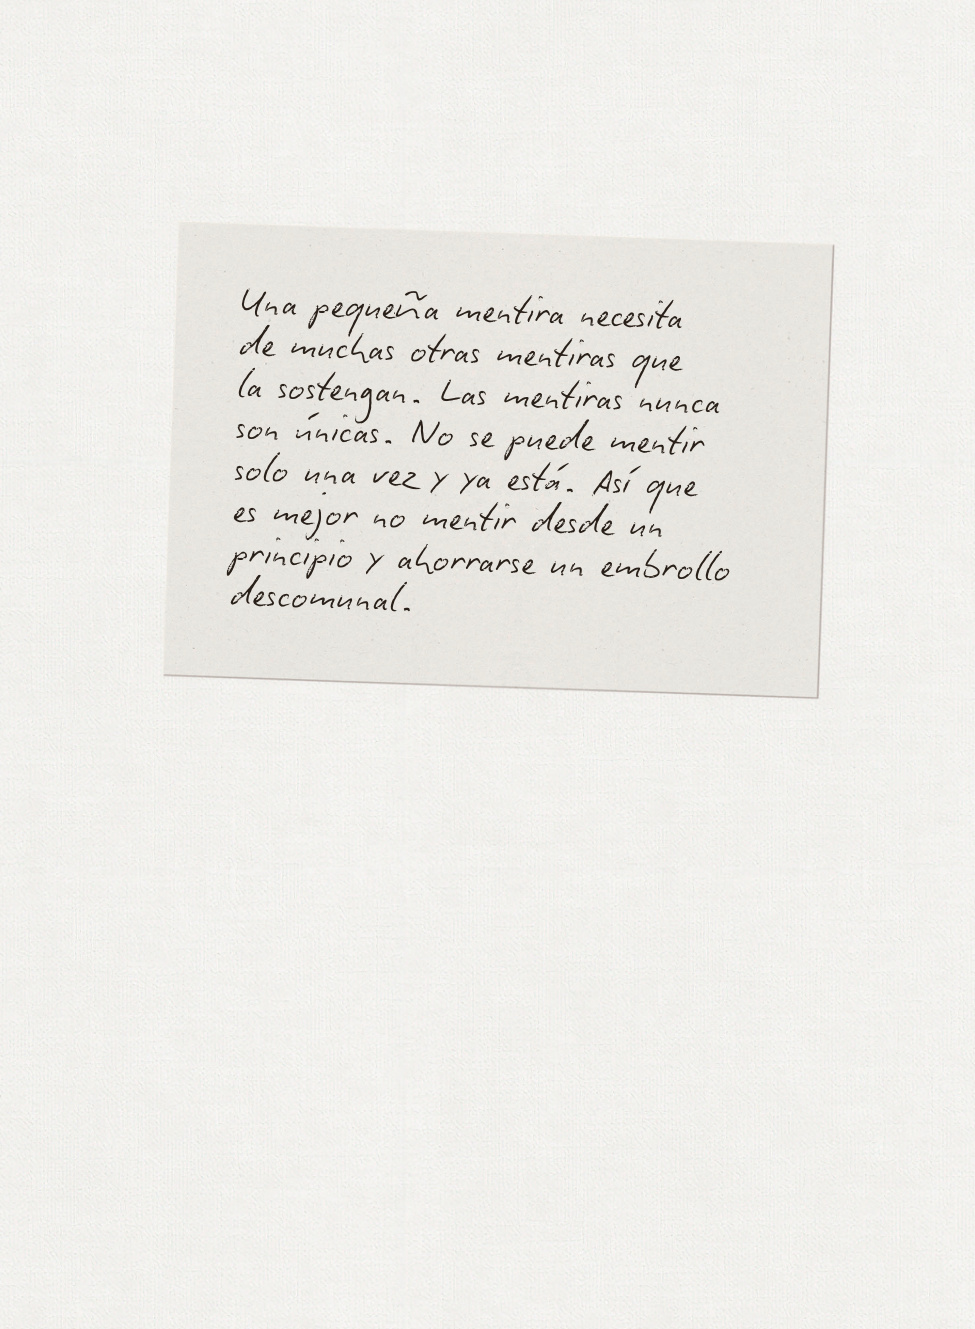 Una pequeña mentira necesita
de muchas otras mentiras que
la sostengan. Las mentiras nunca
son únicas. No se puede mentir
solo una vez y ya está. Así que
es mejor no mentir desde un
principio y ahorrarse un embrollo
descomunal.